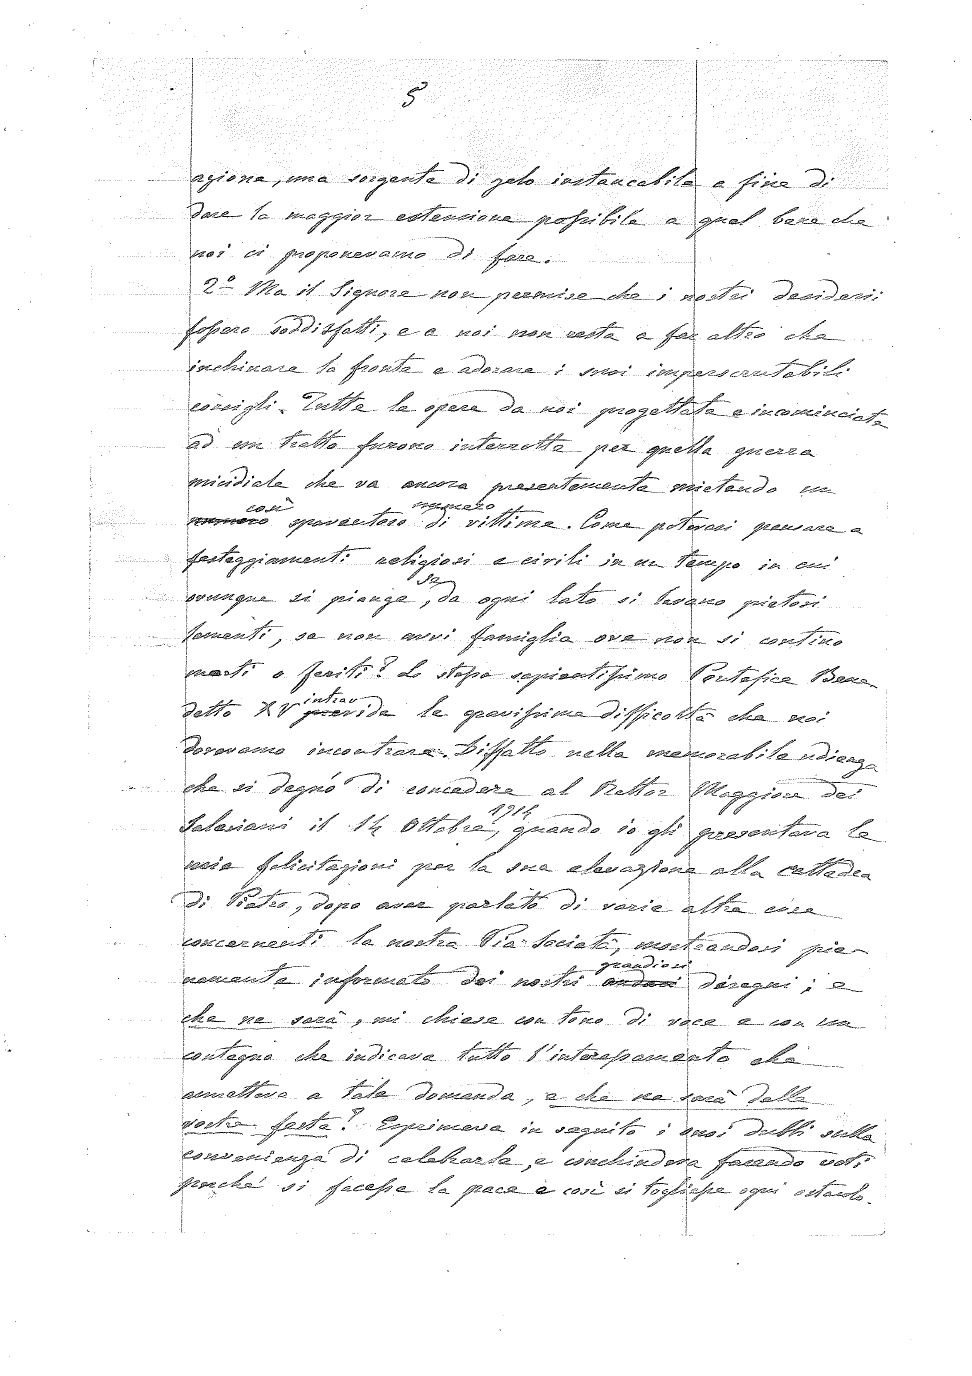 5
azione, una sorgente di zelo instancabile a fine di
dare la maggior estensione possibile a quel bene che
noi ci proponevamo di fare.
2º Ma il Signore non permise che i nostri desiderii
fossero soddisfatti, e a noi non resta a far altro che
inchinare la fronte e adorare i suoi imperscrutabili
consigli. Tutte le opere da noi progettate e incominciate
ad un tratto furono interrotte per quella guerra
micidiale che va ancora presentemente mietendo un
così numero
numero spaventoso di vittime. Come potevasi pensare a
festeggiamenti religiosi e civili in un tempo in cui
se
ovunque si piange, da ogni lato si levano pietosi
lamenti, se non avvi famiglia ove non si contino
morti o feriti? Lo stesso sapientissimo Pontefice Bene-
intrav
detto XV previde le gravissime difficoltà che noi
dovevamo incontrare. Diffatto nella memorabile udienza
che si degnó di concedere al Rettor Maggiore dei
1914
Salesiani il 14 Ottobre, quando io gli presentava le
mie felicitazioni per la sua elevazione alla cattedra
di Pietro, dopo aver parlato di varie altre cose
concernenti la nostra Pia Società, mostrandosi pie-
grandiosi
namente informato dei nostri disegni; e
che ne sarà, mi chiese con tono di voce e con un
contegno che indicava tutto l'interessamento che
annetteva a tale domanda, e che ne sarà delle
vostre feste? Esprimeva in seguito i suoi dubbi sulla
convenienza di celebrarle, e conchiudeva facendo voti
perché si facesse la pace e così si togliesse ogni ostacolo.